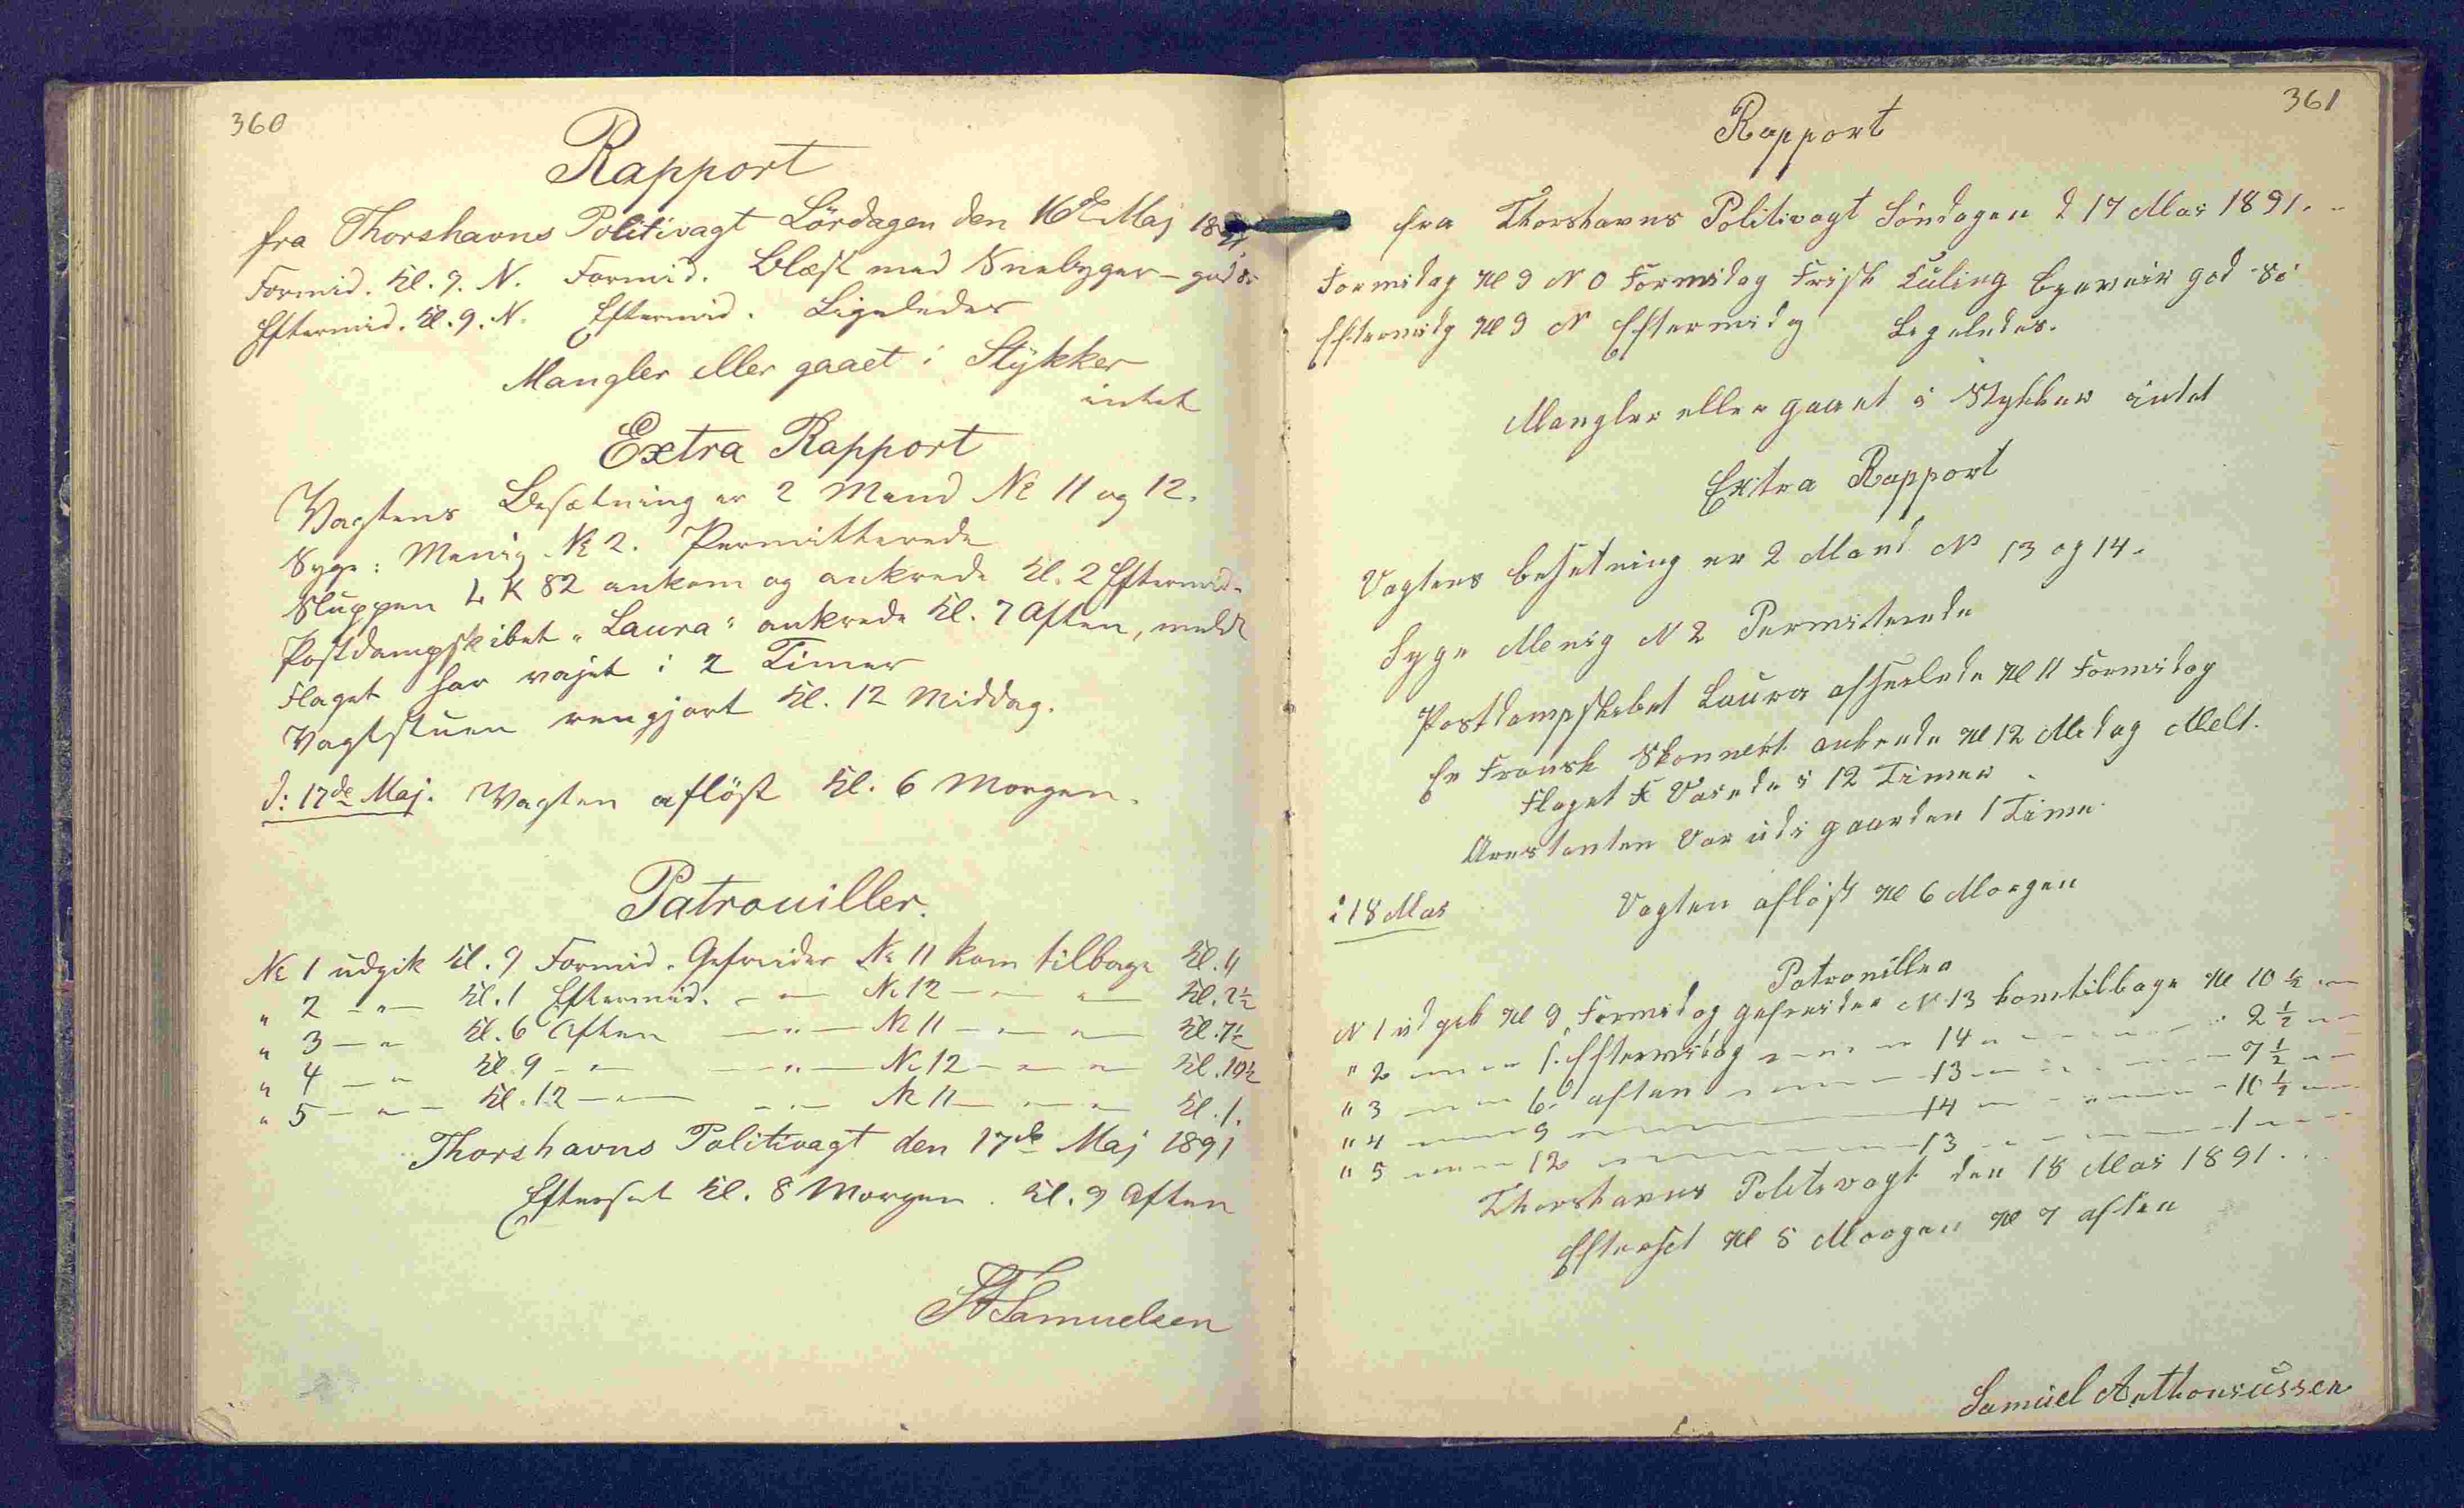 360
Rapport
fra Thorshavns Politivagt Lördagen den 16de Maj 1891
Formid. Kl. 9. N. Formid. Blæst med Snebyger - god Si
Eftermid. Kl. 9. N. Eftermid. Ligeledes
Mangler eller gaaet i Stÿkker
intet
Extra Rapport
Vagtens Besætning er 2 Mand No 11 og 12.
Syge: Menig No 2. Permitterede
Sluppen LK 82 ankom og ankrede Kl. 2 Eftermid.
Postdampskibet "Laura" ankrede Kl. 7 Aften, meldt
Flaget har vajet i 2 Timer
Vagtstuen rengjort Kl. 12 Middag.
d: 17de Maj. Vagten aflöst Kl. 6 Morgen.
Patrouiller.
No 1 udgik Kl. 9 Formid. Gefreider No 11 kom tilbage Kl. 11
" 2 — " — Kl. 1 Eftermid. — " — No 12 — " — " — Kl. 2½
" 3 — " Kl. 6 Aften — " — No 11 — " — " — Kl. 7½
" 4 — " Kl. 9 — " — — " — No 12 — " — " Kl. 10½
" 5 — " — Kl. 12 — " — — " — No 11 — " — " Kl. 1.
Thorshavns Politivagt den 17de Maj 1891
Efterset Kl. 8 Morgen. Kl. 9 Aften
Samuelsen
361
Rapport
fra Thorshavns Politivagt Söndagen d 17 Mai 1891.
Formidag Kl 9 N O Formidag Frisk Kuling Byeveir god Si
Eftermidg Kl 9 N Eftermidg Legeledes.
Mangler eller gaaet i Stykker intet
Extra Rapport
Vagtens besetning er 2 Mand No 13 og 14.
Syge Menig N 2 Permiterede
Postdampskebet Laura afseelede Kl 11 Formidag
En Fransk Skonnert ankrede Kl 12 Medag Melt.
Flaget Vaiede i 12 Timer.
Arestanten Var udi gaarden 1 Time
: 18 Mai Vagten aflöst Kl 6 Morgen
Patrouiller
N 1 ud gek Kl 9 Formidag gefreider N 13 komtilbage Kl 10½ "
" 2 — " — 1. Eftermidag — " — 14 — " — 2½ "
" 3 — " — 6. aften — " — 13 — " — 7½ "
" 4 — " — 9 — " — 14 — " — 10½ "
" 5 — " — 12 — " — 13 — " — 1 "
Thorshavns Politevagt den 18 Mai 1891.
Efterset Kl 8 Morgen Kl 7 aften
Samúel Anthoniússen